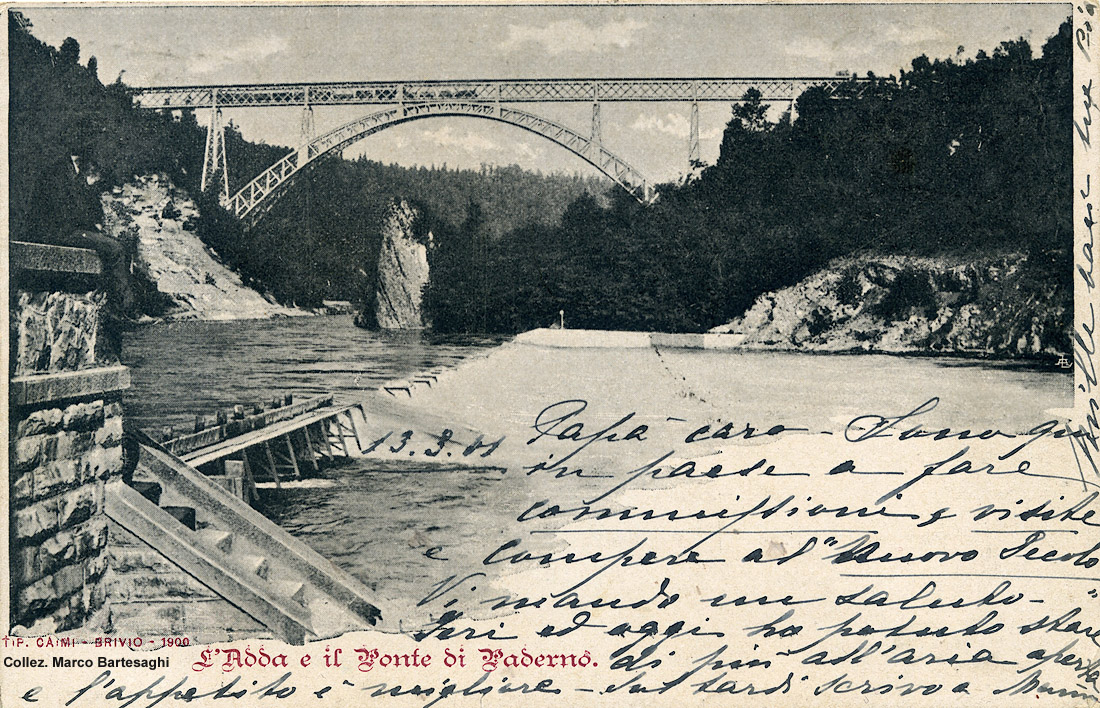 13.3.01
Papà caro - Sono qui
in paese a fare
commissioni, visite
e compere al "Nuovo Secolo"
Vi mando un saluto -
Ieri ed oggi ho potuto stare
di più all'aria aperta
e l'appetito è migliore - sul tardi scrivo a
Mille
TIP. CAIMI - BRIVIO - 1900
Collez. Marco Bartesaghi
L'Adda e il Ponte di Paderno.